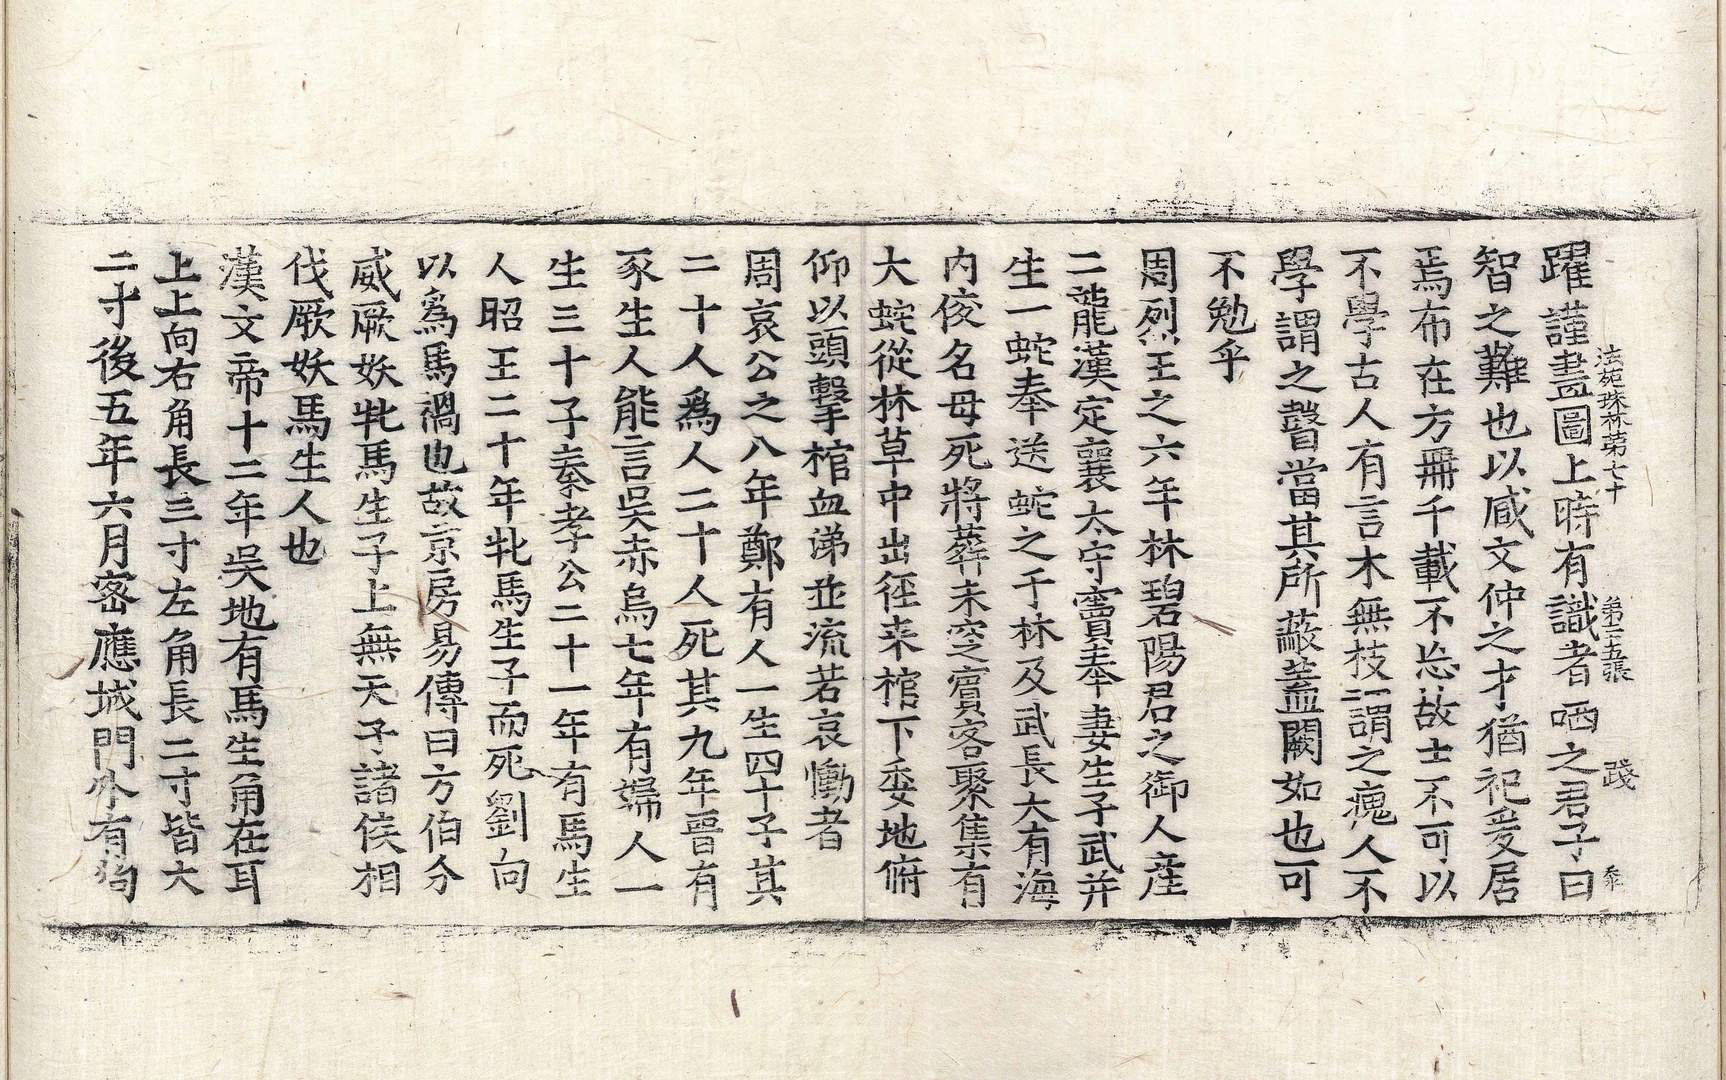 法苑珠林第七十 第二五張 踐 㤗
躍謹畫圖上時有識者哂之君子曰
智之難也以臧文仲之才猶祀爰居
焉布在方冊千載不忘故士不可以
不學古人有言木無枝謂之瘣人不
學謂之瞽當其所蔽盖闕如也可
不勉乎
周烈王之六年林碧陽君之御人産
二龍漢定襄太守竇奉妻生子武并
生一蛇奉送蛇之于林及武長大有海
内俊名母死將葬未窆賓客聚集有
大蛇從林草中出徑来棺下委地俯
仰以頭擊棺血涕並流若哀慟者
周哀公之八年鄭有人一生四十子其
二十人爲人二十人死其九年晉有
豕生人能言吳赤烏七年有婦人一
生三十子秦孝公二十一年有馬生
人昭王二十年牝馬生子而死劉向
以爲馬禍也故京房易傳曰方伯分
威厥妖牝馬生子上無天子諸侯相
伐厥妖馬生人也
漢文帝十二年吳地有馬生角在耳
上上向右角長三寸左角長二寸皆大
二寸後五年六月密應城門外有狗